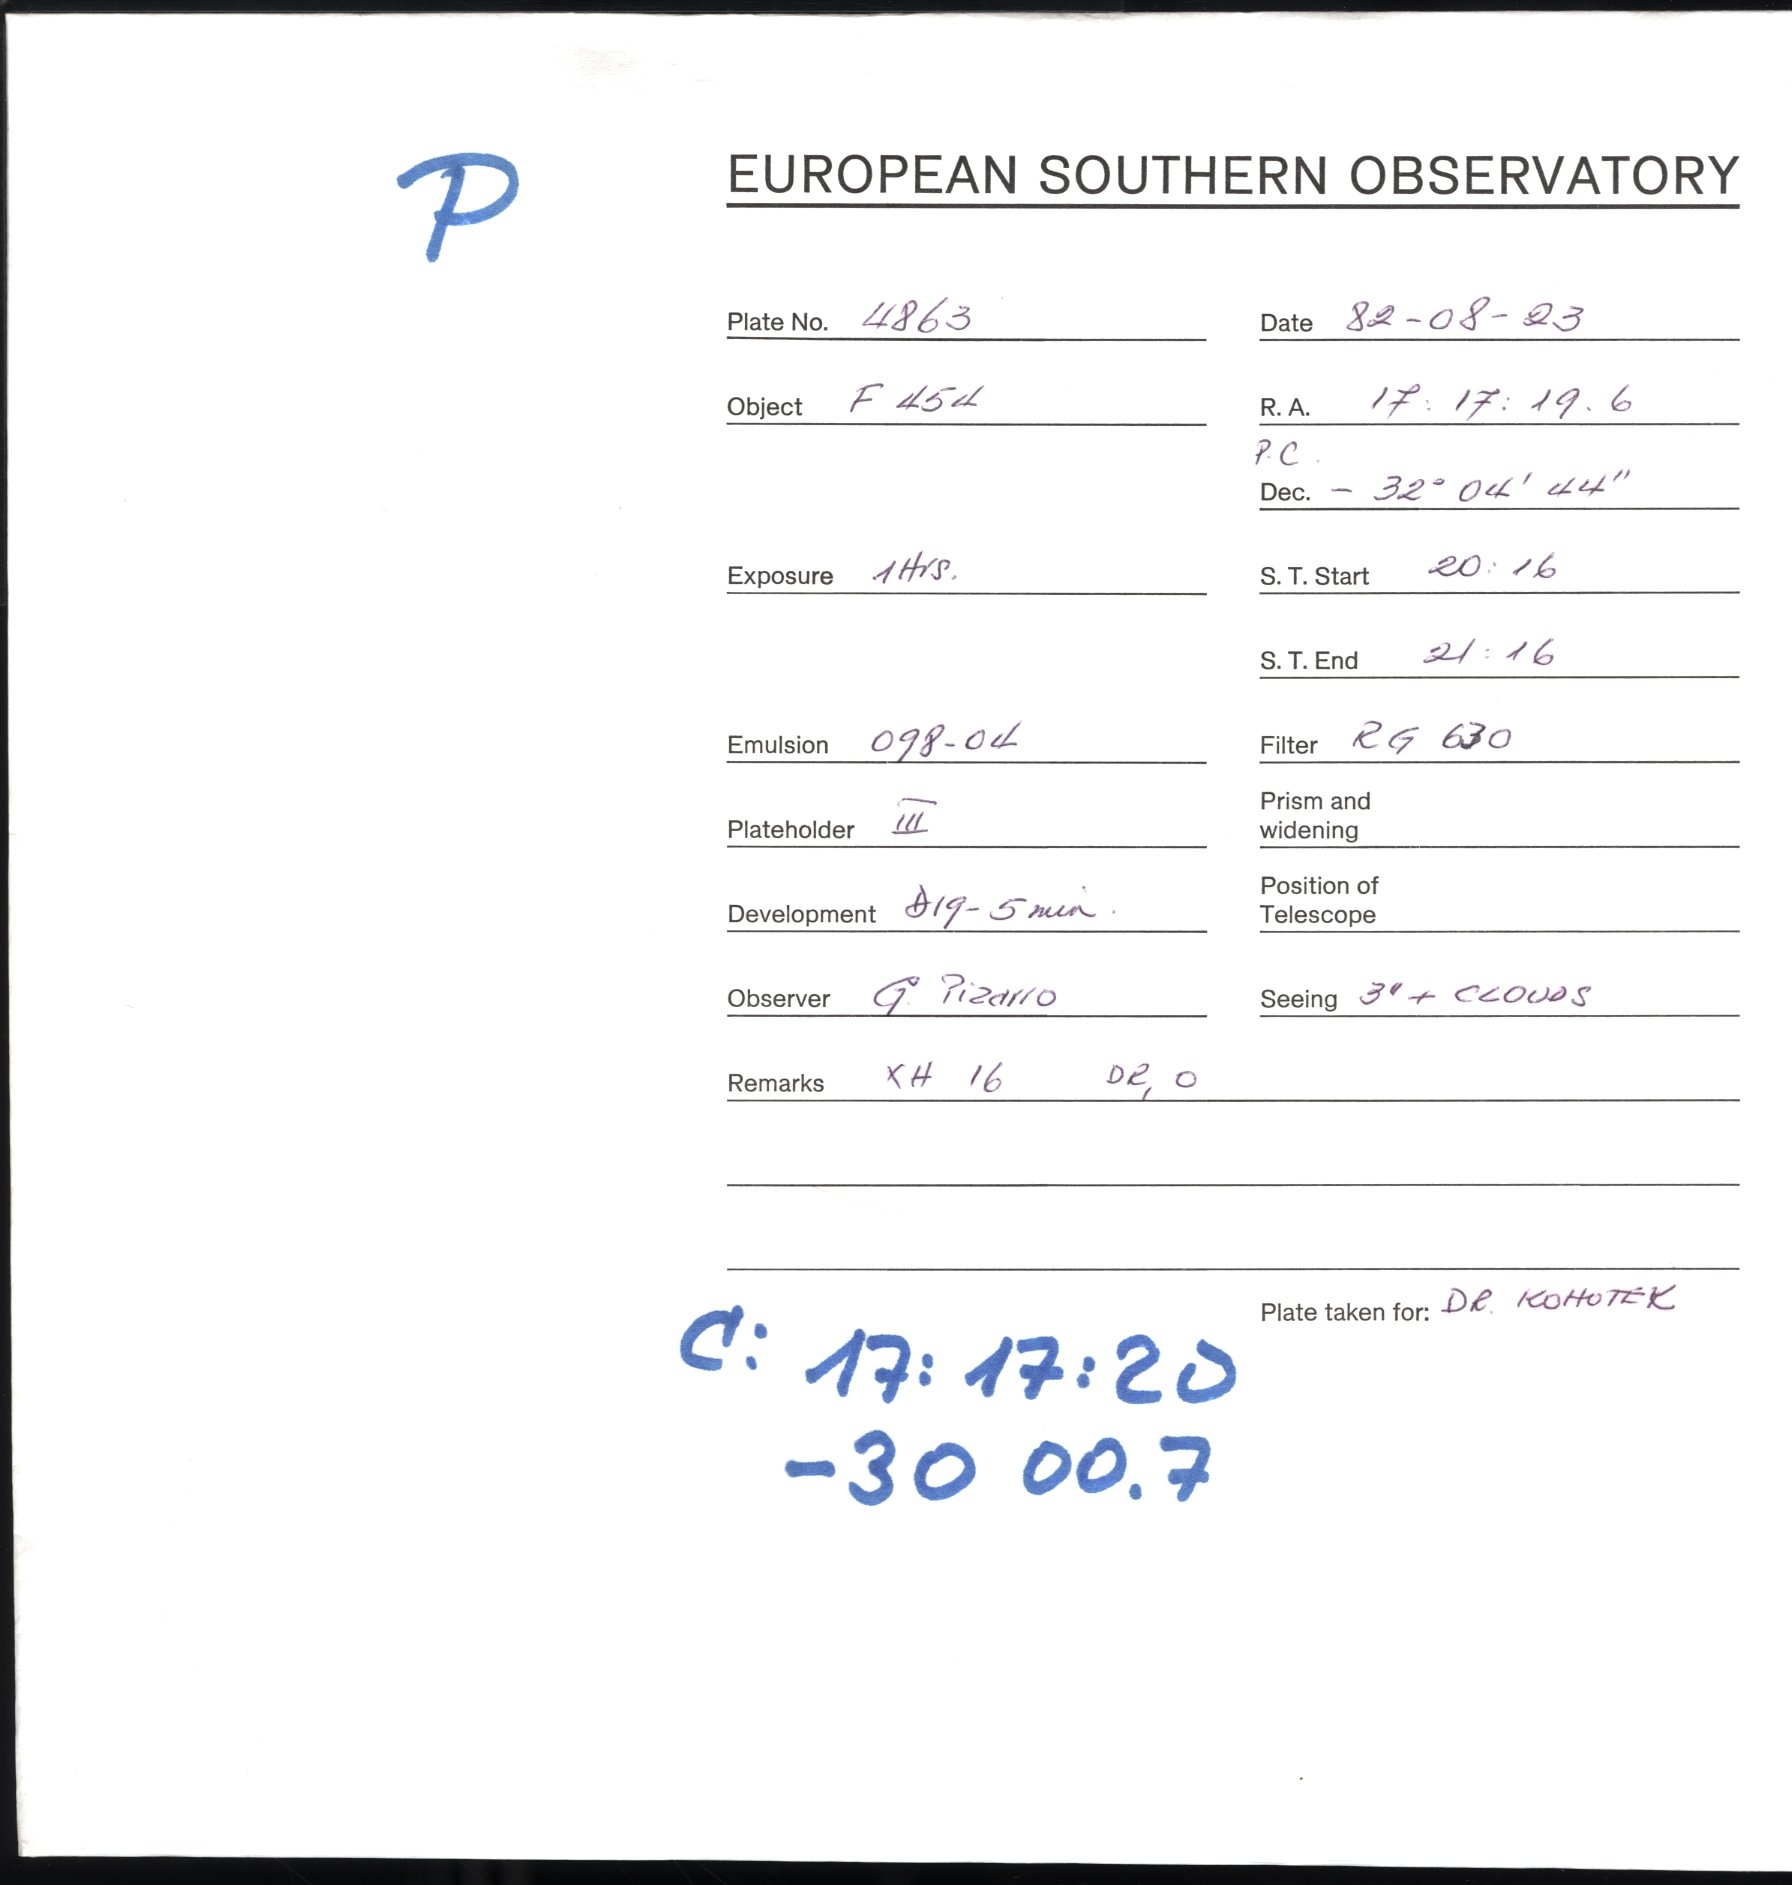 P
EUROPEAN SOUTHERN OBSERVATORY
Plate No. 4863
Date 82-08-23
Object F 454
R. A. 17: 17: 19. 6
P.C.
Dec. - 32° 04' 44"
Exposure 1 Hrs.
S. T. Start 20: 16
S. T. End 21: 16
Emulsion 098-04
Filter RG 630
Plateholder III
Prism and
widening
Development D19- 5 min.
Position of
Telescope
Observer G. Pizarro
Seeing 3" + CLOUDS
Remarks XH 16 DR, 0
Plate taken for: DR. KOHOTEK
C: 17: 17:20
-30 00.7